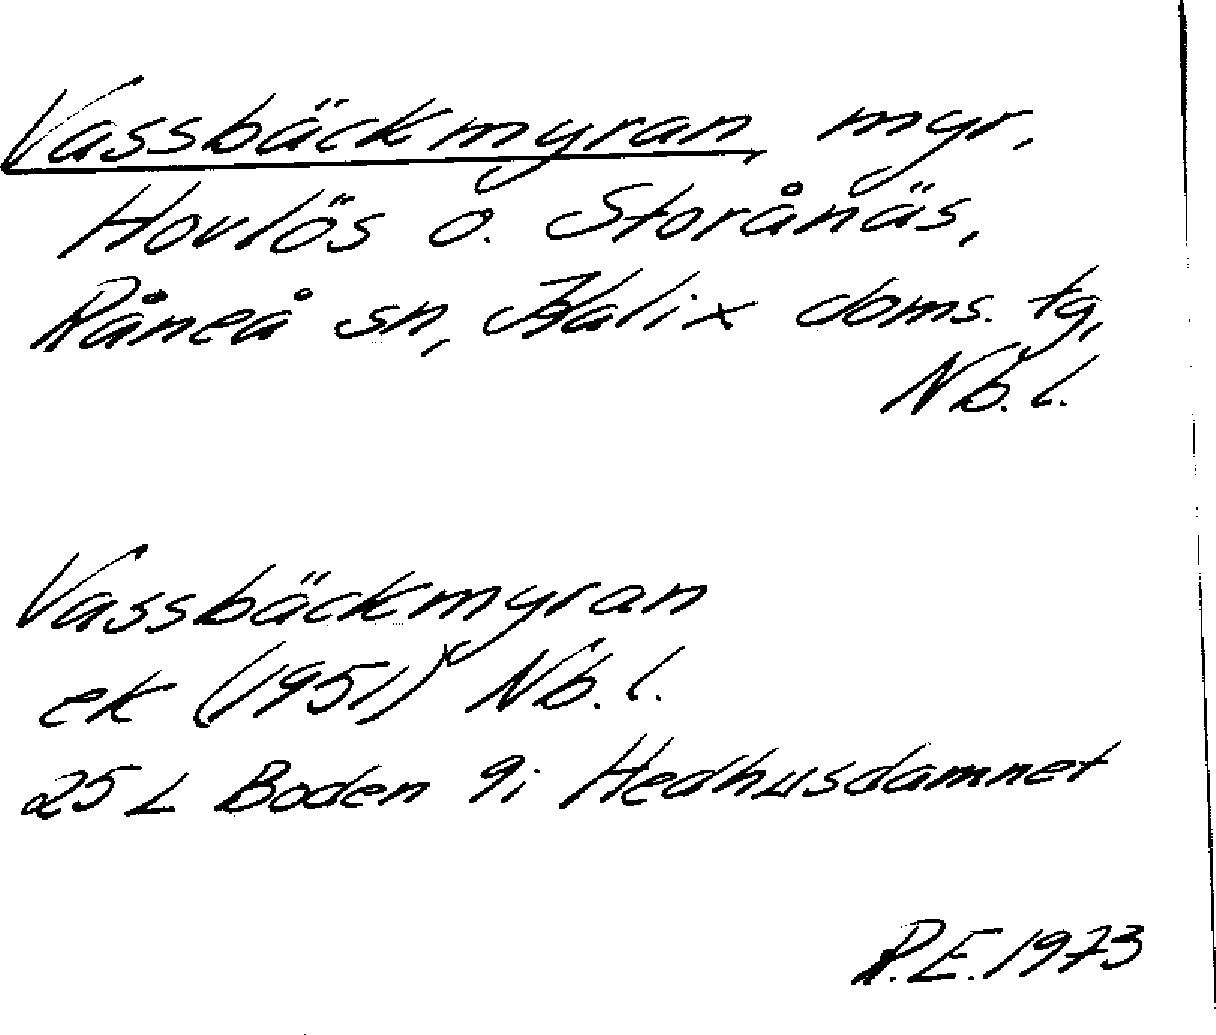 Vassbäckmyran, myr,
Hovlös o. Storånäs,
Råneå sn, Kalix doms. tg,
Nb. l.
Vassbäckmyran
ek (1951) Nb. l.
25 L Boden 9i Hedhusdamnet
R.E. 1973